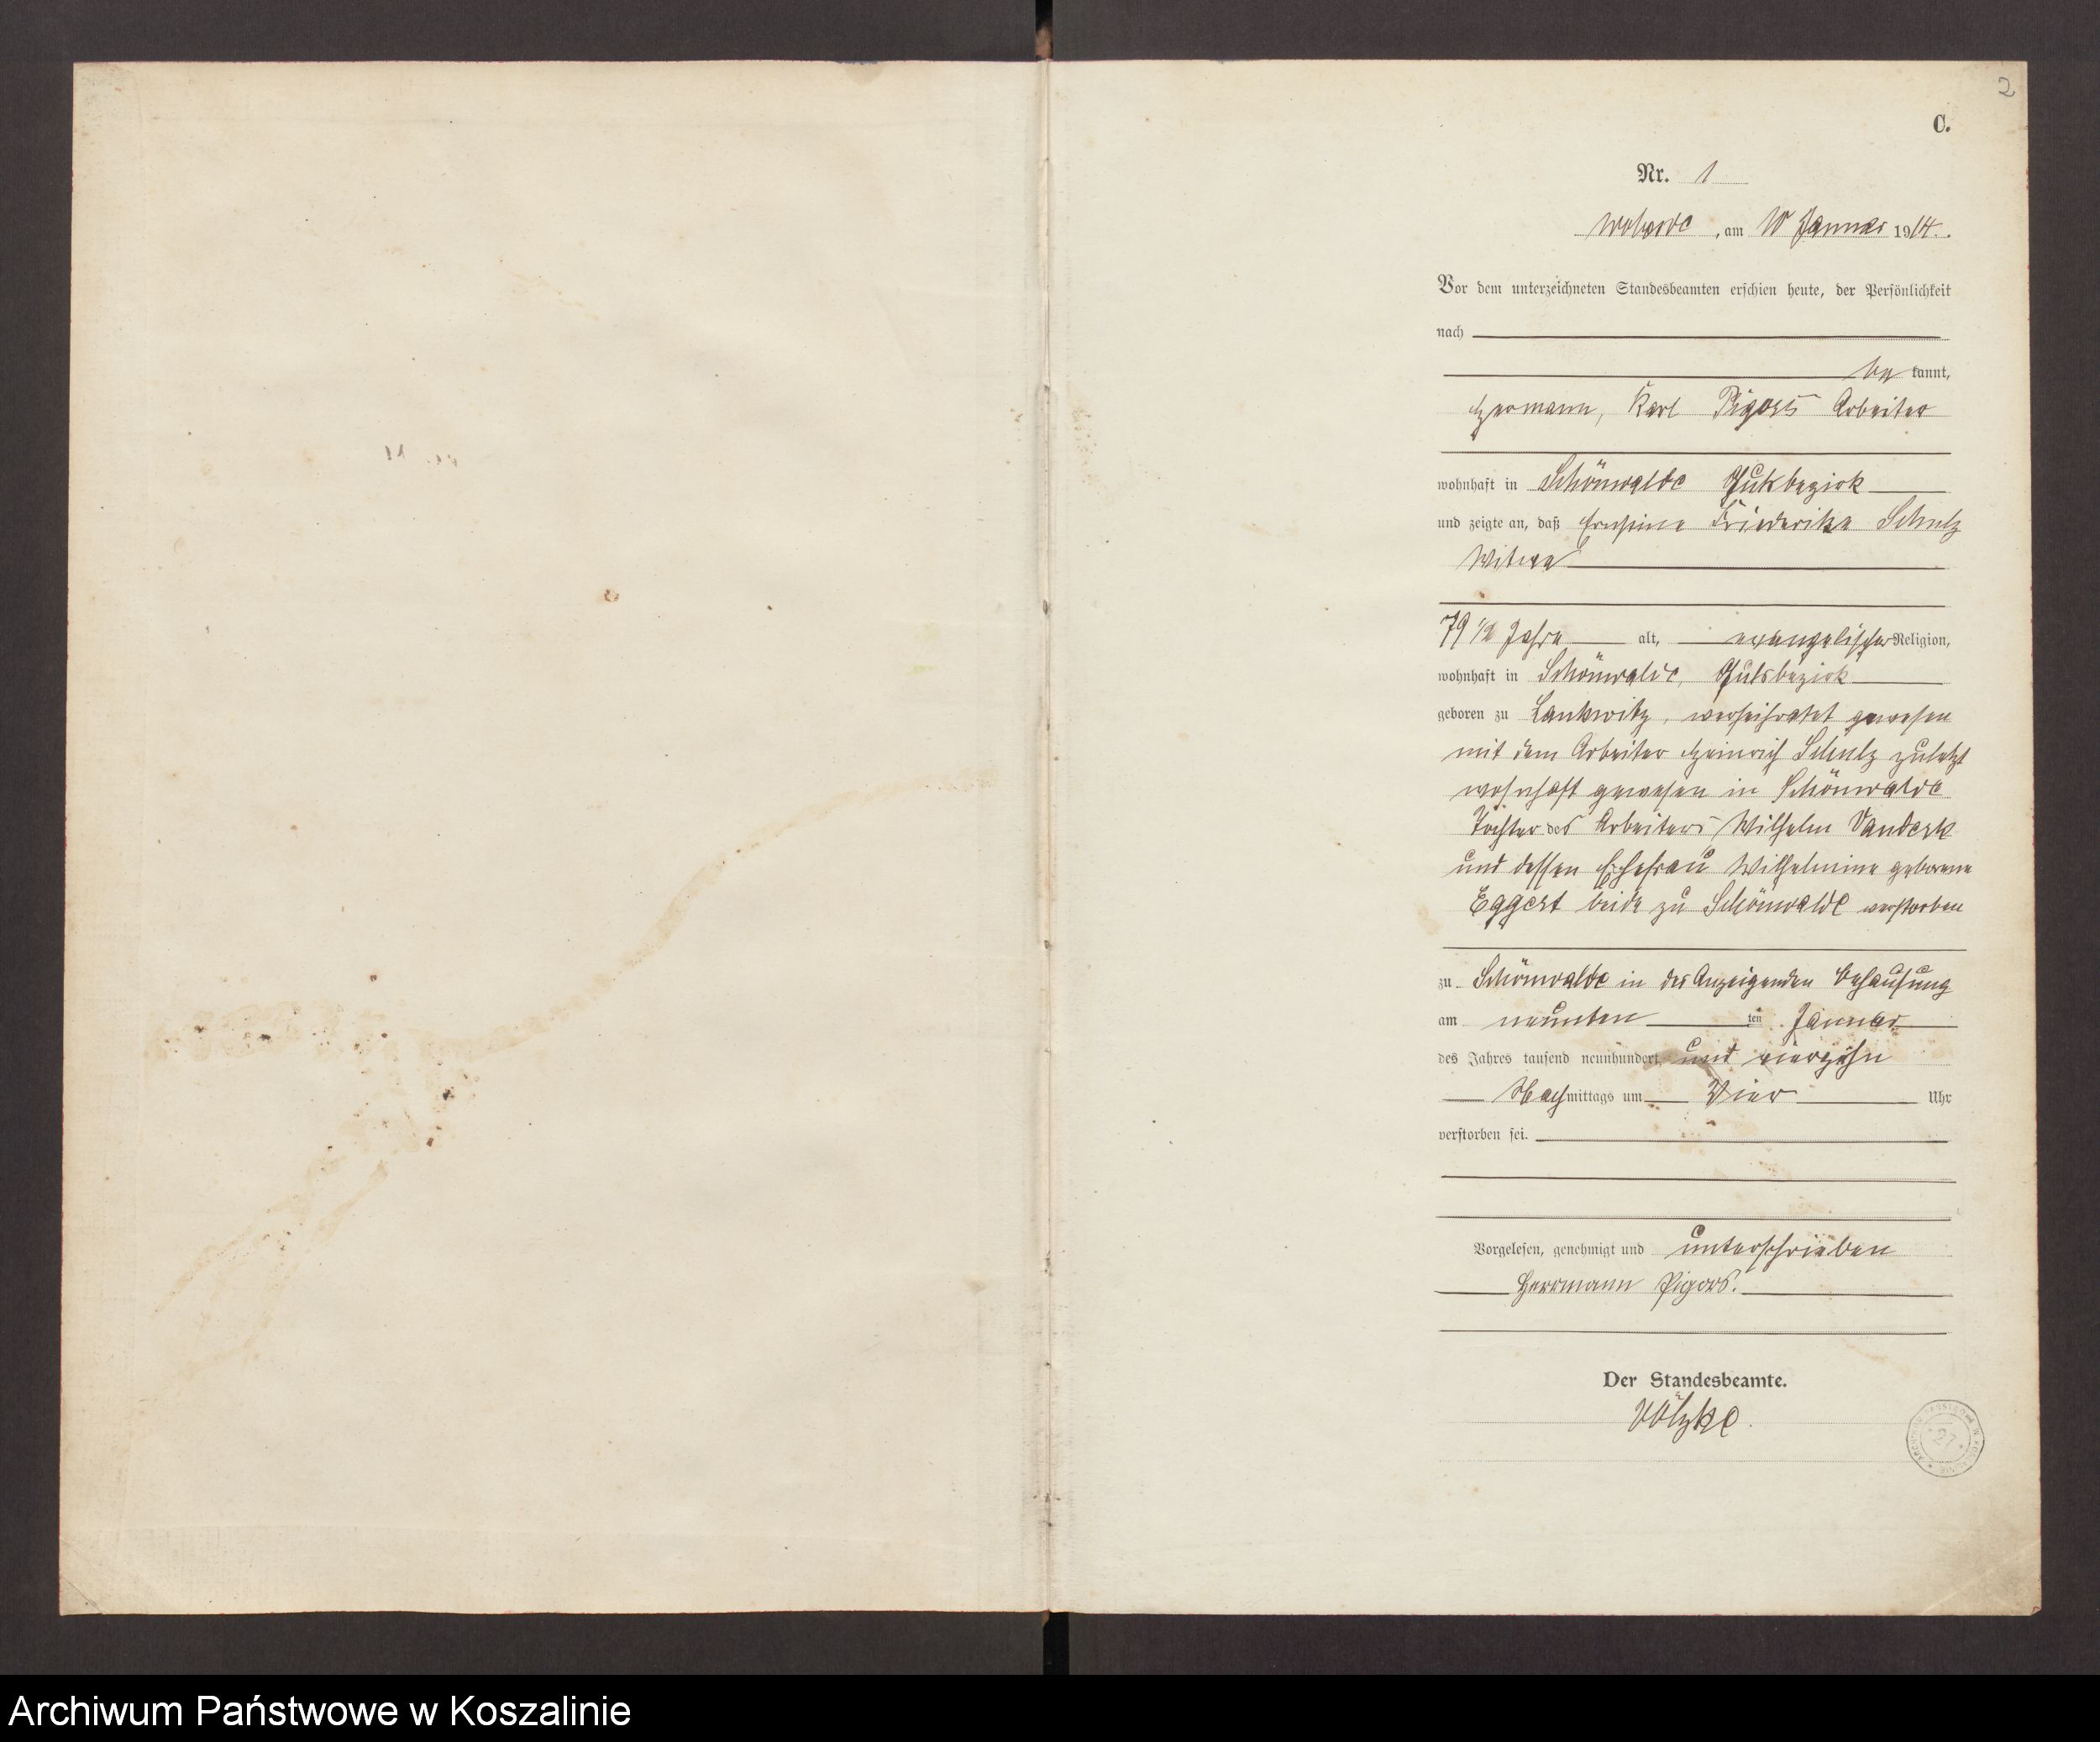 2
C.
Nr. 1
Wobesde, am 10 Januar 1914.
Vor dem unterzeichneten Standesbeamten erschien heute, der Persönlichkeit
nach
be kannt,
Hermann, Karl Pigors Arbeiter
wohnhaft in Schönwalde Gutsbezirk
und zeigte an, daß Ernstine Friederike Schulz
Witwe
79 1/2 Jahre alt, evangelischer Religion,
wohnhaft in Schönwalde, Gutsbezirk
geboren zu Lankwitz, verheiratet gewesen
mit dem Arbeiter Heinrich Schulz zuletzt
wohnhaft gewesen in Schönwalde
Tochter des Arbeiters Wilhelm
und dessen Ehefrau Wilhelmine geborene
Eggert beide zu Schönwalde verstorben
zu Schönwalde in des Anzeigenden Behausung
am neunten ten Januar
des Jahres tausend neunhundert und vierzehn
Nachmittags um Vier Uhr
verstorben sei.
Vorgelesen, genehmigt und unterschrieben
Herrmann Pigors.
Der Standesbeamte.
Völzke.
27
Archiwum Państwowe w Koszalinie